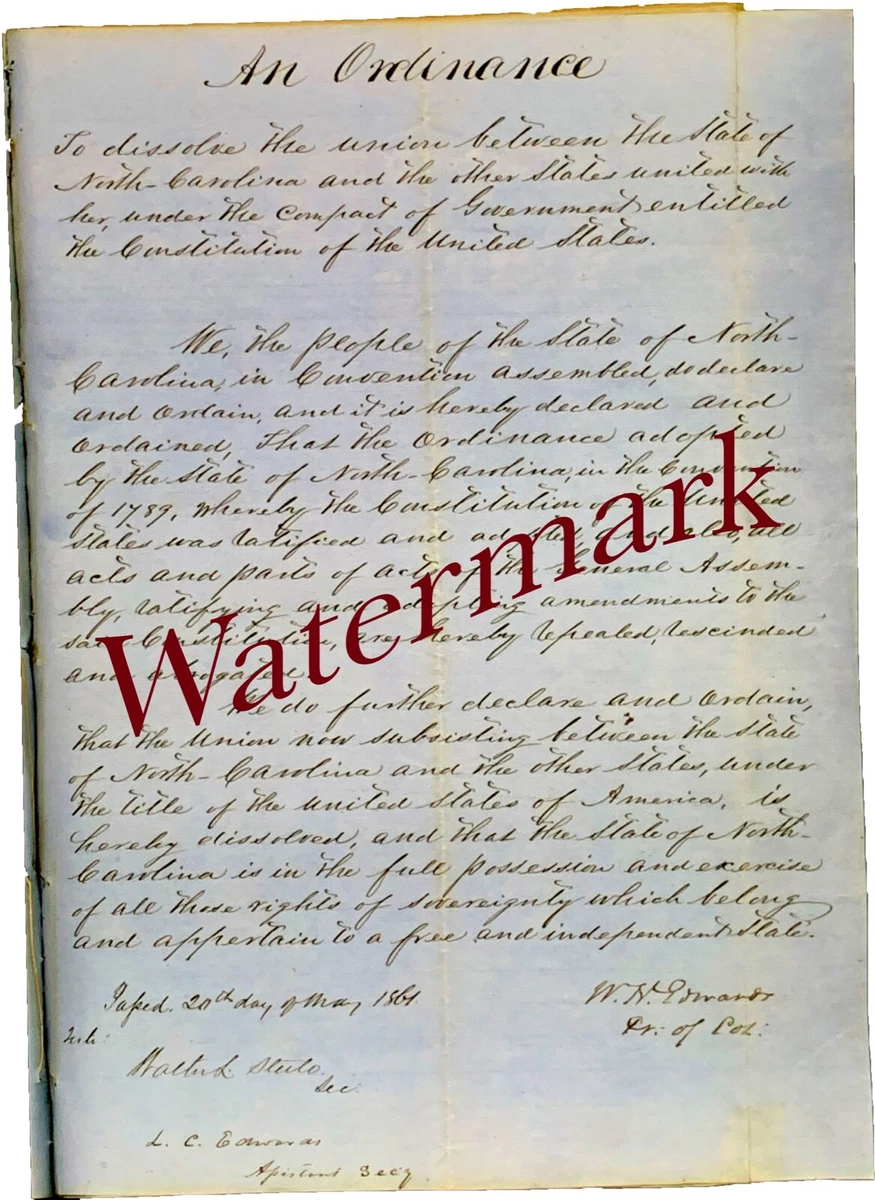 An Ordinance
To dissolve the union between the State of
North-Carolina and the other States united with
her, under the compact of Government entitled
the Constitution of the United States.
We, the people of the State of North-
Carolina, in Convention assembled, do declare
and ordain, and it is hereby declared and
ordained, That the Ordinance adopted
by the State of North-Carolina, in the Convention
of 1789, whereby the Constitution of the United
States was ratified and adopted, and also, all
acts and parts of acts of the General Assem-
bly, ratifying and adopting amendments to the
said Constitution, are hereby repealed, rescinded
and abrogated.
We do further declare and ordain,
that the Union now subsisting between the State
of North-Carolina and the other States, under
the title of the United States of America, is
hereby dissolved, and that the State of North-
Carolina is in the full possession and exercise
of all those rights of sovereignty which belong
and appertain to a free and independent State.
Passed. 20th day of May 1861
W. N. Edwards
Pr: of Con:
Walter L Steele.
Sec.
L. C. Edwards
Assistant Secy
Watermark